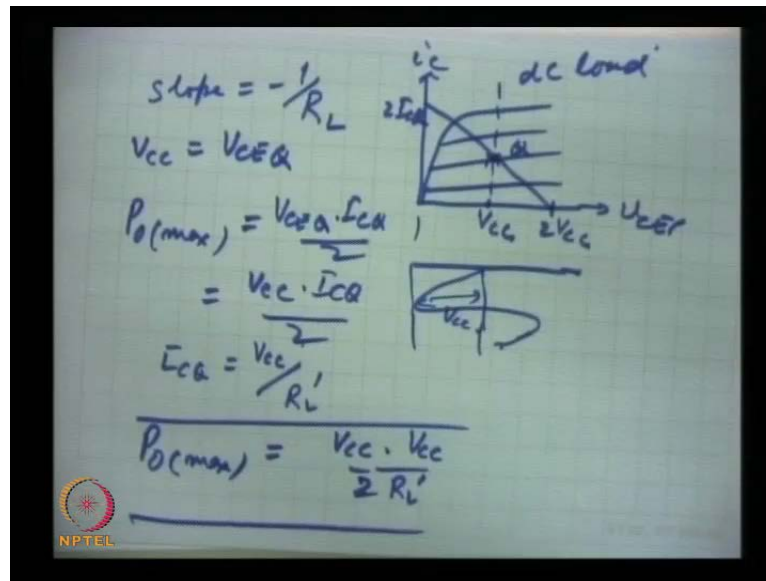 slope = -1/R_L
V_CC = V_CEQ
P_O(max) = V_CEQ · I_CQ / 2
= V_CC · I_CQ / 2
I_CQ = V_CC / R_L'
P_O(max) = V_CC / 2 · V_CC / R_L'
i_C
dc load
2I_CQ
Q
V_CC
2V_CC
V_CC
NPTEL